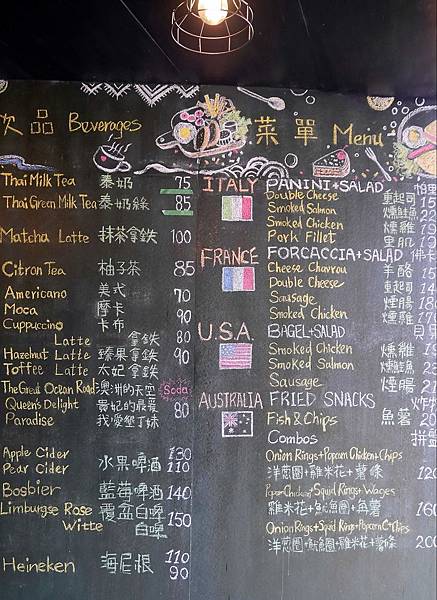 飲品 Beverages
Thai Milk Tea 泰奶 75
Thai Green Milk Tea 泰奶綠 85
Matcha Latte 抹茶拿鉄 100
Citron Tea 柚子茶 85
Americano 美式 70
Moca 摩卡 90
Cuppuccino 卡布
Latte 拿鉄 80
Hazelnut Latte 榛果拿鉄 90
Toffee Latte 太妃拿鉄
The Great Ocean Road 澳洲的天空 Soda
Queen's Delight 貴妃的最愛 80
Paradise 我愛墾丁妹
Apple Cider 130
水果啤酒
Pear Cider 110
Bosbier 藍莓啤酒 140
Limburgse Rose 覆盆白啤 150
Witte 白啤
Heineken 海尼根 110
90
菜單 Menu
ITALY PANINI+SALAD
Double Cheese 重起司
Smoked Salmon 燻鮭
Smoked Chicken 燻雞
Pork Fillet 里肌
FRANCE FORCACCIA+SALAD 佛卡
Cheese Chavrou 羊酪 15
Double Cheese 重起司
Sausage 燻腸
Smoked Chicken 燻雞
U.S.A. BAGEL+SALAD 貝果
Smoked Chicken 燻雞
Smoked Salmon 燻鮭
Sausage 燻腸 21
AUSTRALIA FRIED SNACKS 炸物
Fish & Chips 魚薯 20
Combos 拼盤
Onion Rings+Popcorn Chicken+Chips
洋蔥圈+雞米花+薯條 120
Popcorn Chicken+Squid Rings+Wages
雞米花+魷魚圈+角薯 160
Onion Rings+Squid Rings+Popcorn C+Chips
洋蔥圈+魷魚圈+雞米花+薯條 200